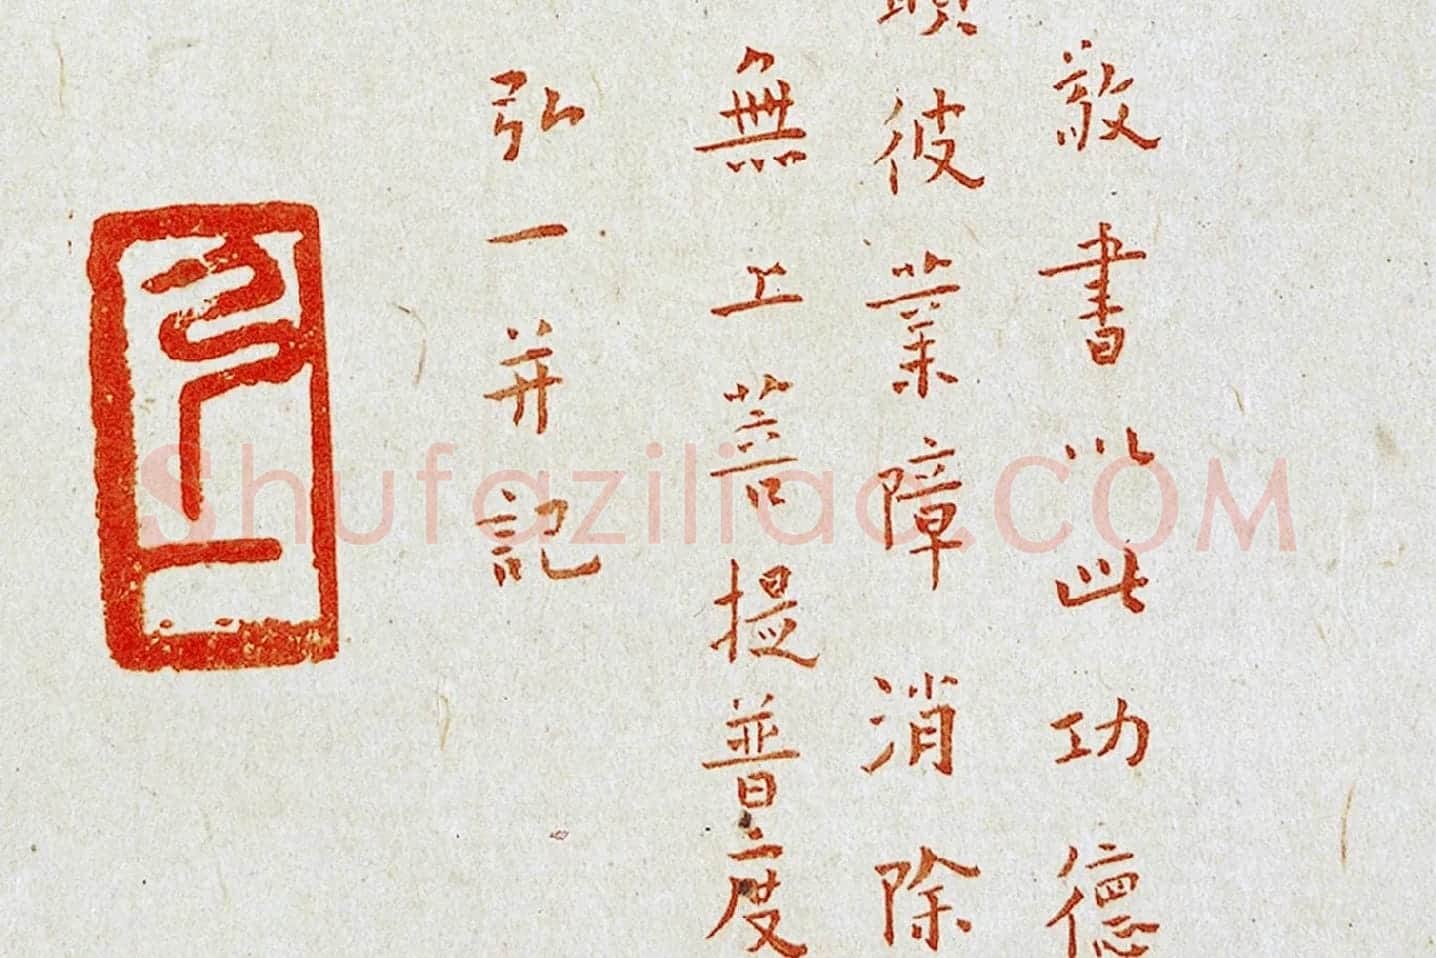 敬書以此功德
彼業障消除
無上菩提普度
弘一并記
弘一
ShufaziliaoC.COM